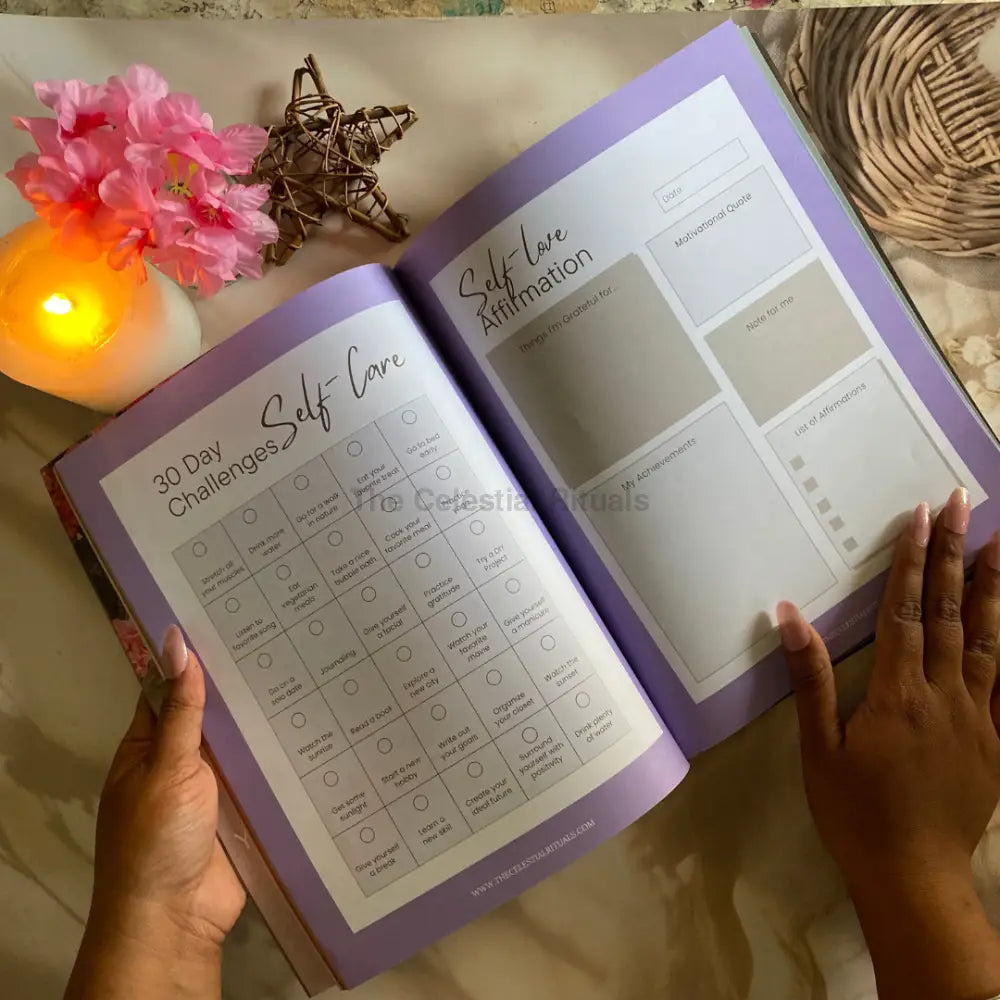 30 Day
Challenges
Self-Care
Stretch all
your muscles
Drink more
water
Go for a walk
in nature
Eat your
favorite treat
Go to bed
early
Listen to
favorite song
Eat
vegetarian
meals
Take a nice
bubble bath
Cook your
favorite meal
Go on a
solo date
Journaling
Give yourself
a facial
Practice
gratitude
Try a DIY
Project
Watch the
Read a book
Explore a
new city
Watch your
favorite
movie
Give yourself
a manicure
Get some
sunlight
Start a new
hobby
Write out
your goals
Organize
your closet
Watch the
sunset
Give yourself
a break
Learn a
new skill
Create your
ideal future
Surround
yourself with
positivity
Drink plenty
of water
WWW.THECELESTIALRITUALS.COM
Self-Love
Affirmation
Date
Things I'm Grateful for...
Motivational Quote
Note for me
My Achievements
List of Affirmations
The Celestial Rituals